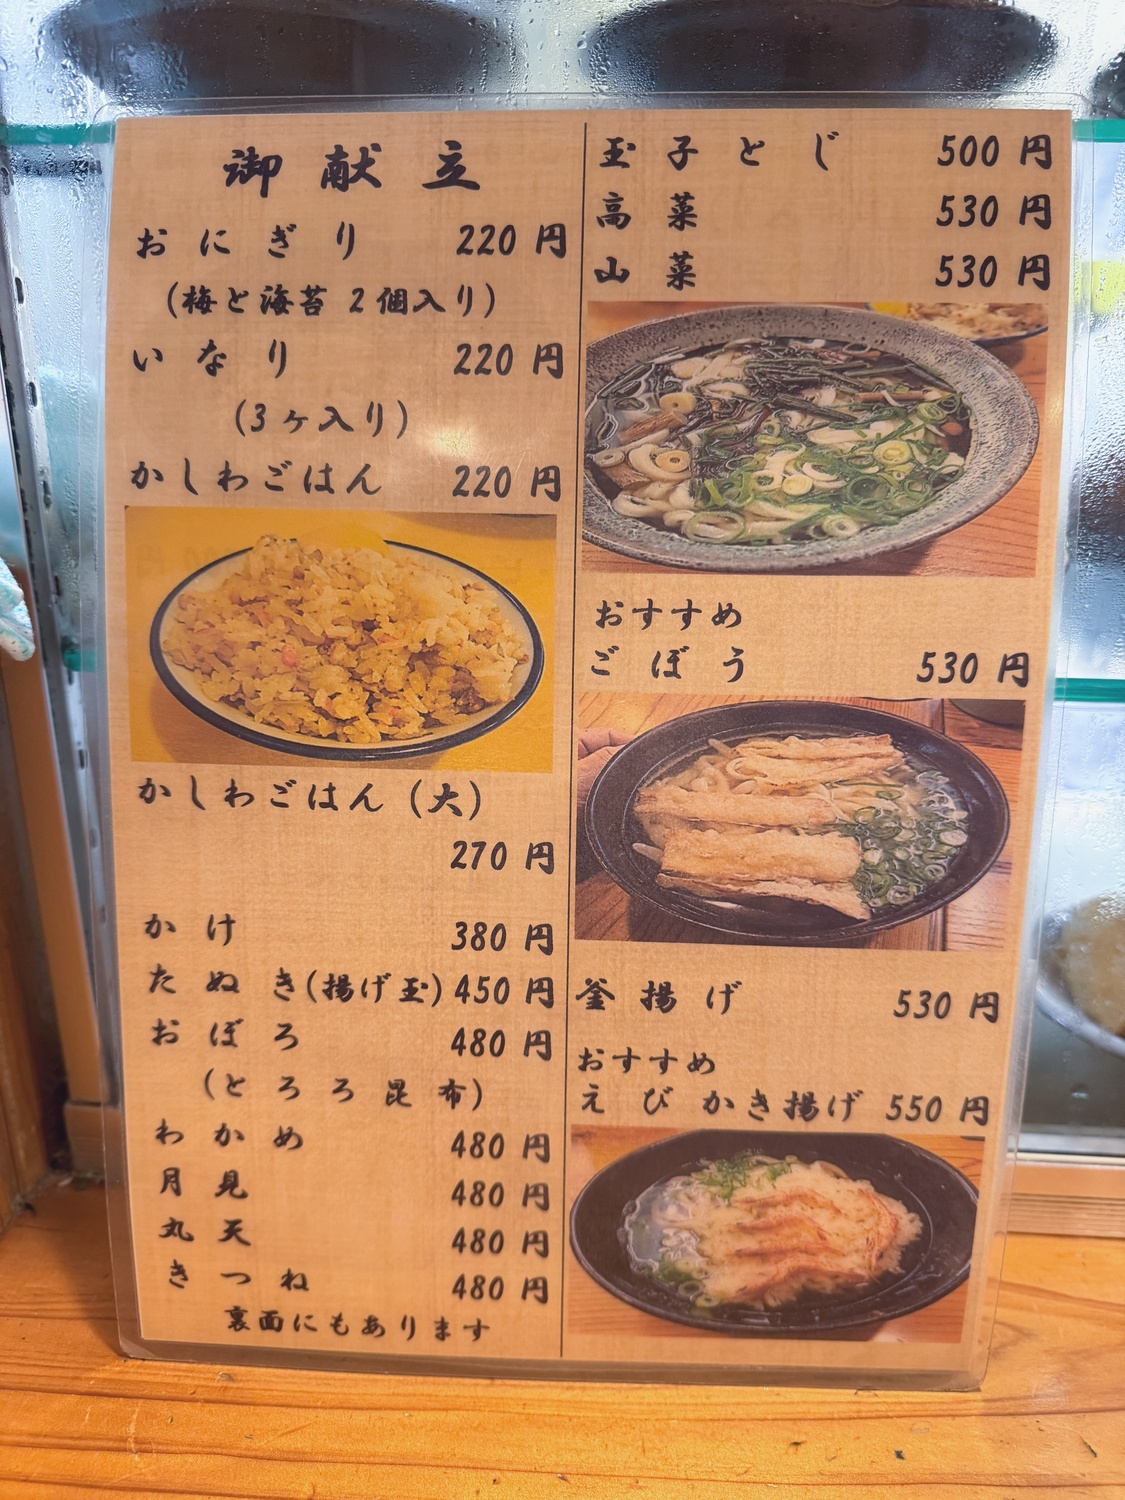 御献立
おにぎり 220円
(梅と海苔 2個入り)
いなり 220円
(3ヶ入り)
かしわごはん 220円
かしわごはん(大)
270円
かけ 380円
たぬき(揚げ玉) 450円
おぼろ 480円
(とろろ昆布)
わかめ 480円
月見 480円
丸天 480円
きつね 480円
裏面にもあります
玉子とじ 500円
高菜 530円
山菜 530円
おすすめ
ごぼう 530円
釜揚げ 530円
おすすめ
えびかき揚げ 550円